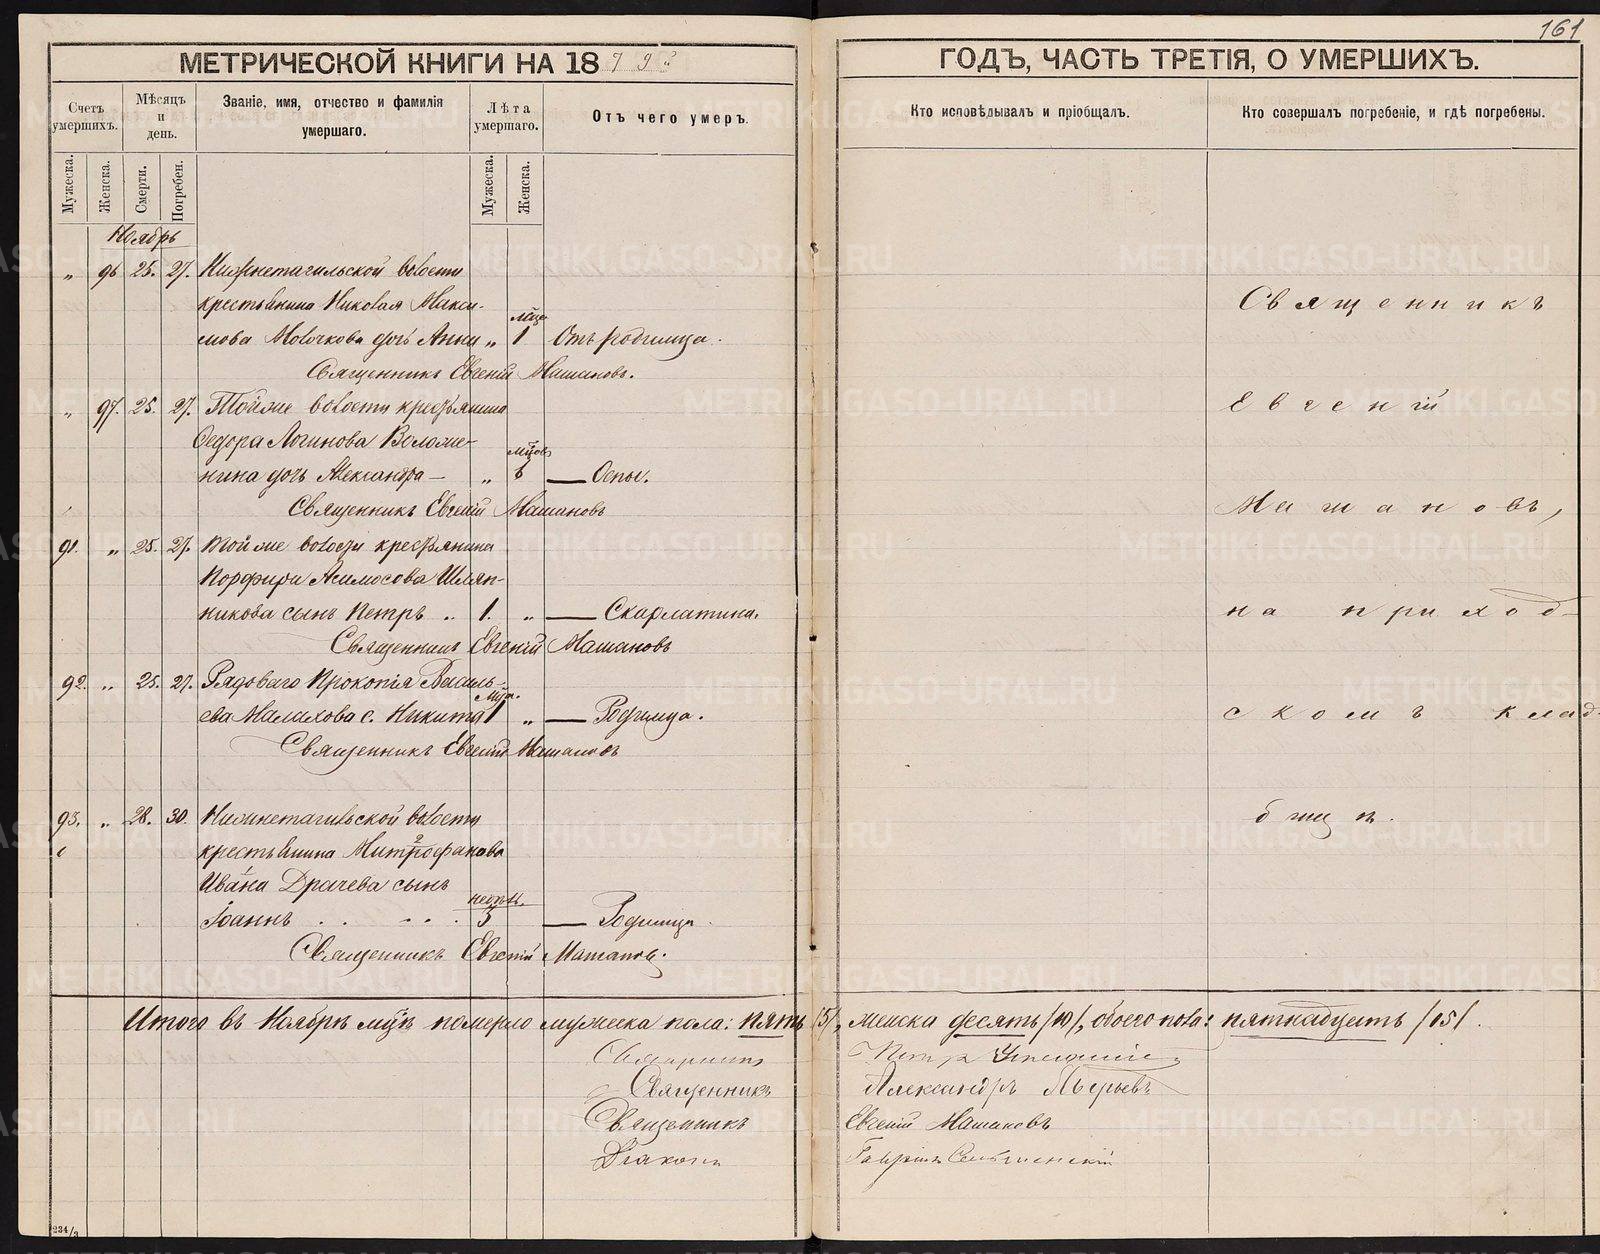 161
МЕТРИЧЕСКОЙ КНИГИ НА 18
ГОДЪ, ЧАСТЬ ТРЕТІЯ, О УМЕРШИХЪ.
Счетъ умершихъ.
Мѣсяцъ и день.
Званіе, имя, отчество и фамилія умершаго.
Лѣта умершаго.
Отъ чего умеръ.
Кто исповѣдывалъ и пріобщалъ.
Кто совершалъ погребеніе, и гдѣ погребены.
Мужеска.
Женска.
Смерти.
Погребен.
Мужеска.
Женска.
Ноябрь
„ 96 25. 27. Нижнетагильской волости
крестьянина Николая Макси-
мова Молочкова дочь Анна „ 1 Отъ родимца.
Священникъ Евгеній Машановъ.
„ 97. 25. 27. Той же волости крестьянина
Ѳедора Логинова Воломе-
нина дочь Александра — „ 6 — Оспы.
Священникъ Евгеній Машановъ
91. „ 25. 27. Той же волости крестьянина
Порфирія Шляп-
никова сынъ Петръ „ 1. „ — Скарлатина.
Священникъ Евгеній Машановъ
92. „ 25. 27. Рядоваго Прокопія Василь-
ева Малахова с. Никита 1 „ — Родимца.
Священникъ Евгеній Машановъ
93. „ 28. 30. Нижнетагильской волости
крестьянина Митрофанова
Ивана Драчева сынъ
Іоаннъ 3 — Родимца.
Священникъ Евгеній Машановъ.
Священникъ
Евгеній
Машановъ,
на приход-
скомъ клад-
бищѣ.
Итого въ Ноябрѣ мцѣ померло мужеска пола: пять /5/, женска десять /10/, обоего пола: пятнадцать /15/.
Священникъ Петръ
Священникъ Александръ
Священникъ Евгеній Машановъ
Діаконъ
234/3
METRIKI.GASO-URAL.RU